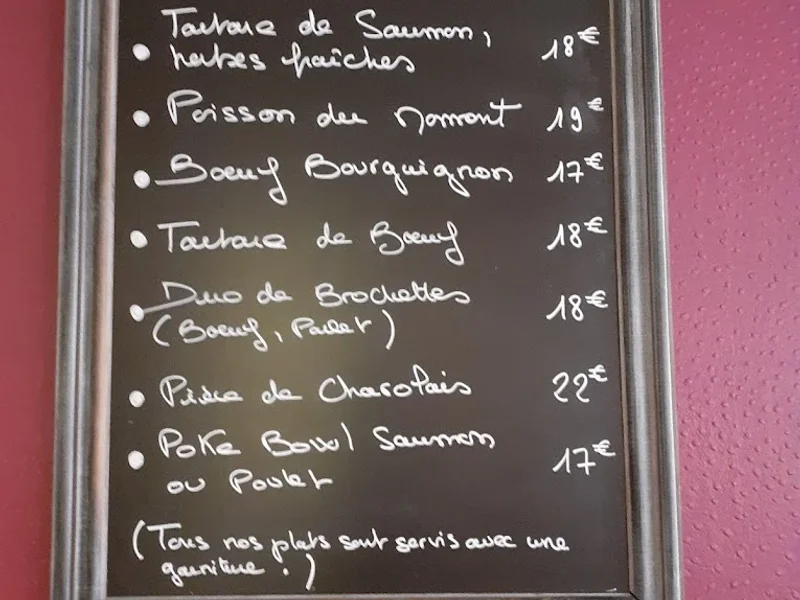 Tartare de Saumon,
herbes fraîches 18€
Poisson du moment 19€
Boeuf Bourguignon 17€
Tartare de Boeuf 18€
Duo de Brochettes
(Boeuf, Poulet) 18€
Pièce de Charolais 22€
Poke Bowl Saumon
ou Poulet 17€
(Tous nos plats sont servis avec une
garniture.)